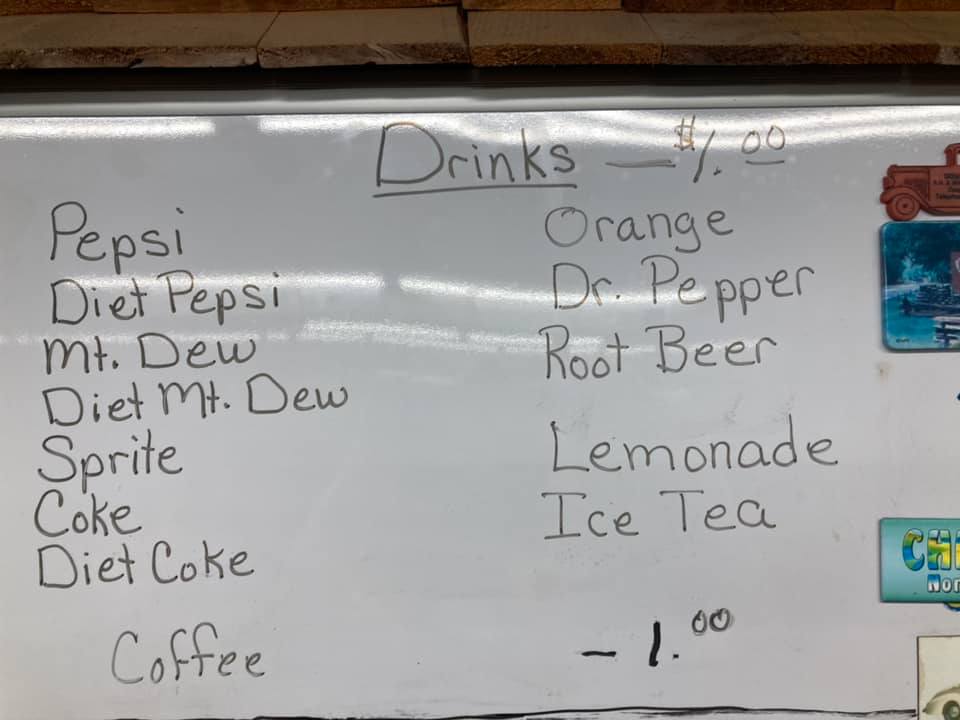 Drinks — $1.00
Pepsi
Diet Pepsi
Mt. Dew
Diet Mt. Dew
Sprite
Coke
Diet Coke
Orange
Dr. Pepper
Root Beer
Lemonade
Ice Tea
Coffee – 1.00